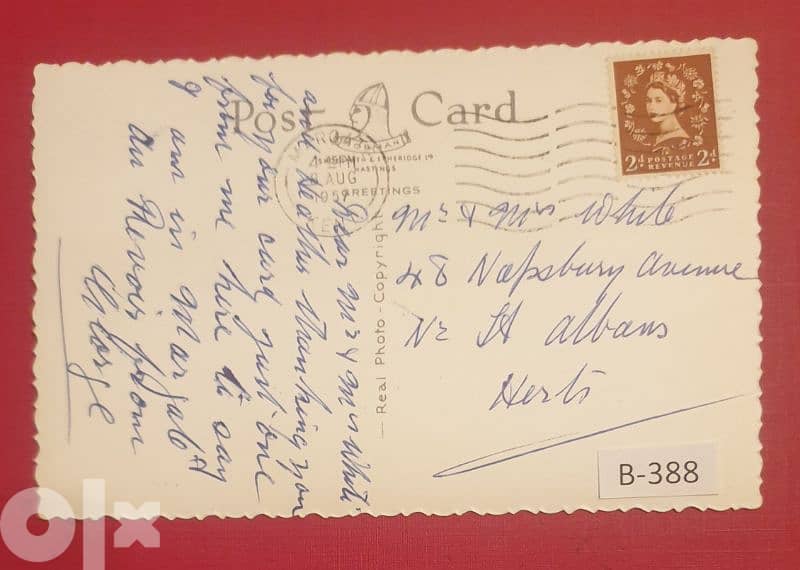 Post Card
NORMAN
SHOESMITH & ETHERIDGE LD
HASTINGS
GREETINGS
MARGATE
4 45 PM
AUG
1957
KENT
2D POSTAGE REVENUE 2D
Dear Mr & Mrs White
and Heather thanking you
for your card just one
from me here to say
I am in Margate
Au Revoir from
George
Real Photo - Copyright
Mr & Mrs White
48 Napsbury Avenue
Nr St Albans
Herts
B-388
olx